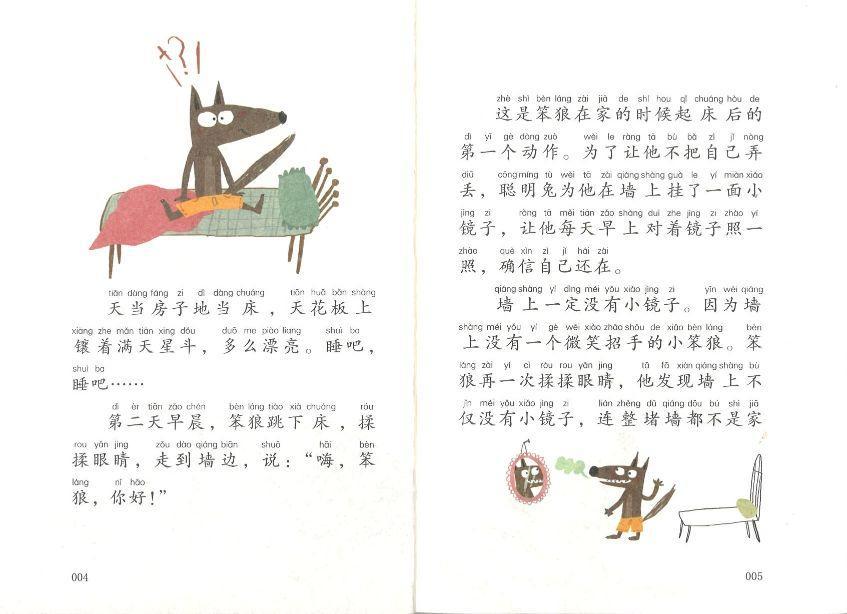 +!?!
tiān dàng fáng zi dì dàng chuáng tiān huā bǎn shàng
天当房子地当床，天花板上
xiāng zhe mǎn tiān xīng dǒu duō me piào liang shuì ba
镶着满天星斗，多么漂亮。睡吧，
shuì ba
睡吧……
dì èr tiān zǎo chén bèn láng tiào xià chuáng róu
第二天早晨，笨狼跳下床，揉
rou yǎn jing zǒu dào qiáng biān shuō hāi bèn
揉眼睛，走到墙边，说：“嗨，笨
láng nǐ hǎo
狼，你好！”
004
zhè shì bèn láng zài jiā de shí hou qǐ chuáng hòu de
这是笨狼在家的时候起床后的
dì yī gè dòng zuò wèi le ràng tā bù bǎ zì jǐ nòng
第一个动作。为了让他不把自己弄
diū cóng míng tù wèi tā zài qiáng shàng guà le yí miàn xiǎo
丢，聪明兔为他在墙上挂了一面小
jìng zi ràng tā měi tiān zǎo shang duì zhe jìng zi zhào yí
镜子，让他每天早上对着镜子照一
zhào què xìn zì jǐ hái zài
照，确信自己还在。
qiáng shàng yí dìng méi yǒu xiǎo jìng zi yīn wèi qiáng
墙上一定没有小镜子。因为墙
shàng méi yǒu yí gè wēi xiào zhāo shǒu de xiǎo bèn láng bèn
上没有一个微笑招手的小笨狼。笨
láng zài yí cì róu rou yǎn jing tā fā xiàn qiáng shàng bù
狼再一次揉揉眼睛，他发现墙上不
jǐn méi yǒu xiǎo jìng zi lián zhěng dǔ qiáng dōu bú shì jiā
仅没有小镜子，连整堵墙都不是家
005